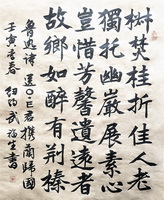 椒焚桂折佳人老
獨托幽巖展素心
豈惜芳馨遺遠者
故鄉如醉有荊榛
魯迅诗 送O.E君携蘭歸國
壬寅季春 纽约 武福生書